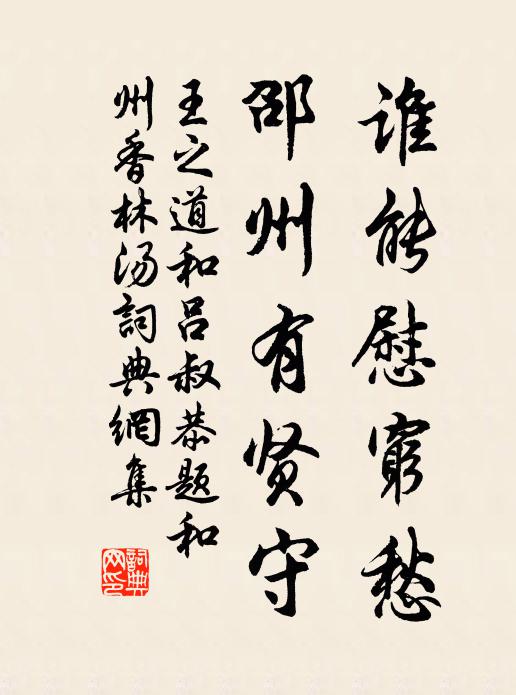 谁能慰穷愁
邵州有贤守
王之道和吕叔恭题和
州香林汤詞典網集
詞典網印